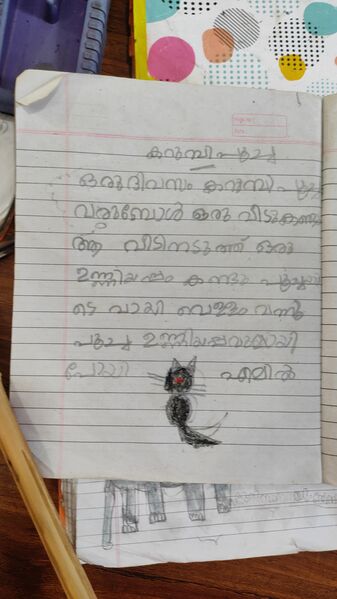 കറുമ്പി പൂച്ച
ഒരുദിവസം കറുമ്പി പൂച്ച
വരുമ്പോൾ ഒരു വീടുകണ്ടു
ആ വീടിനടുത്ത് ഒരു
ഉണ്ണിയപ്പം കണ്ടു പൂച്ചയു
ടെ വായി വെള്ളം വന്നു
പൂച്ച ഉണ്ണിയപ്പവുമായി
പോയി എമിൽ